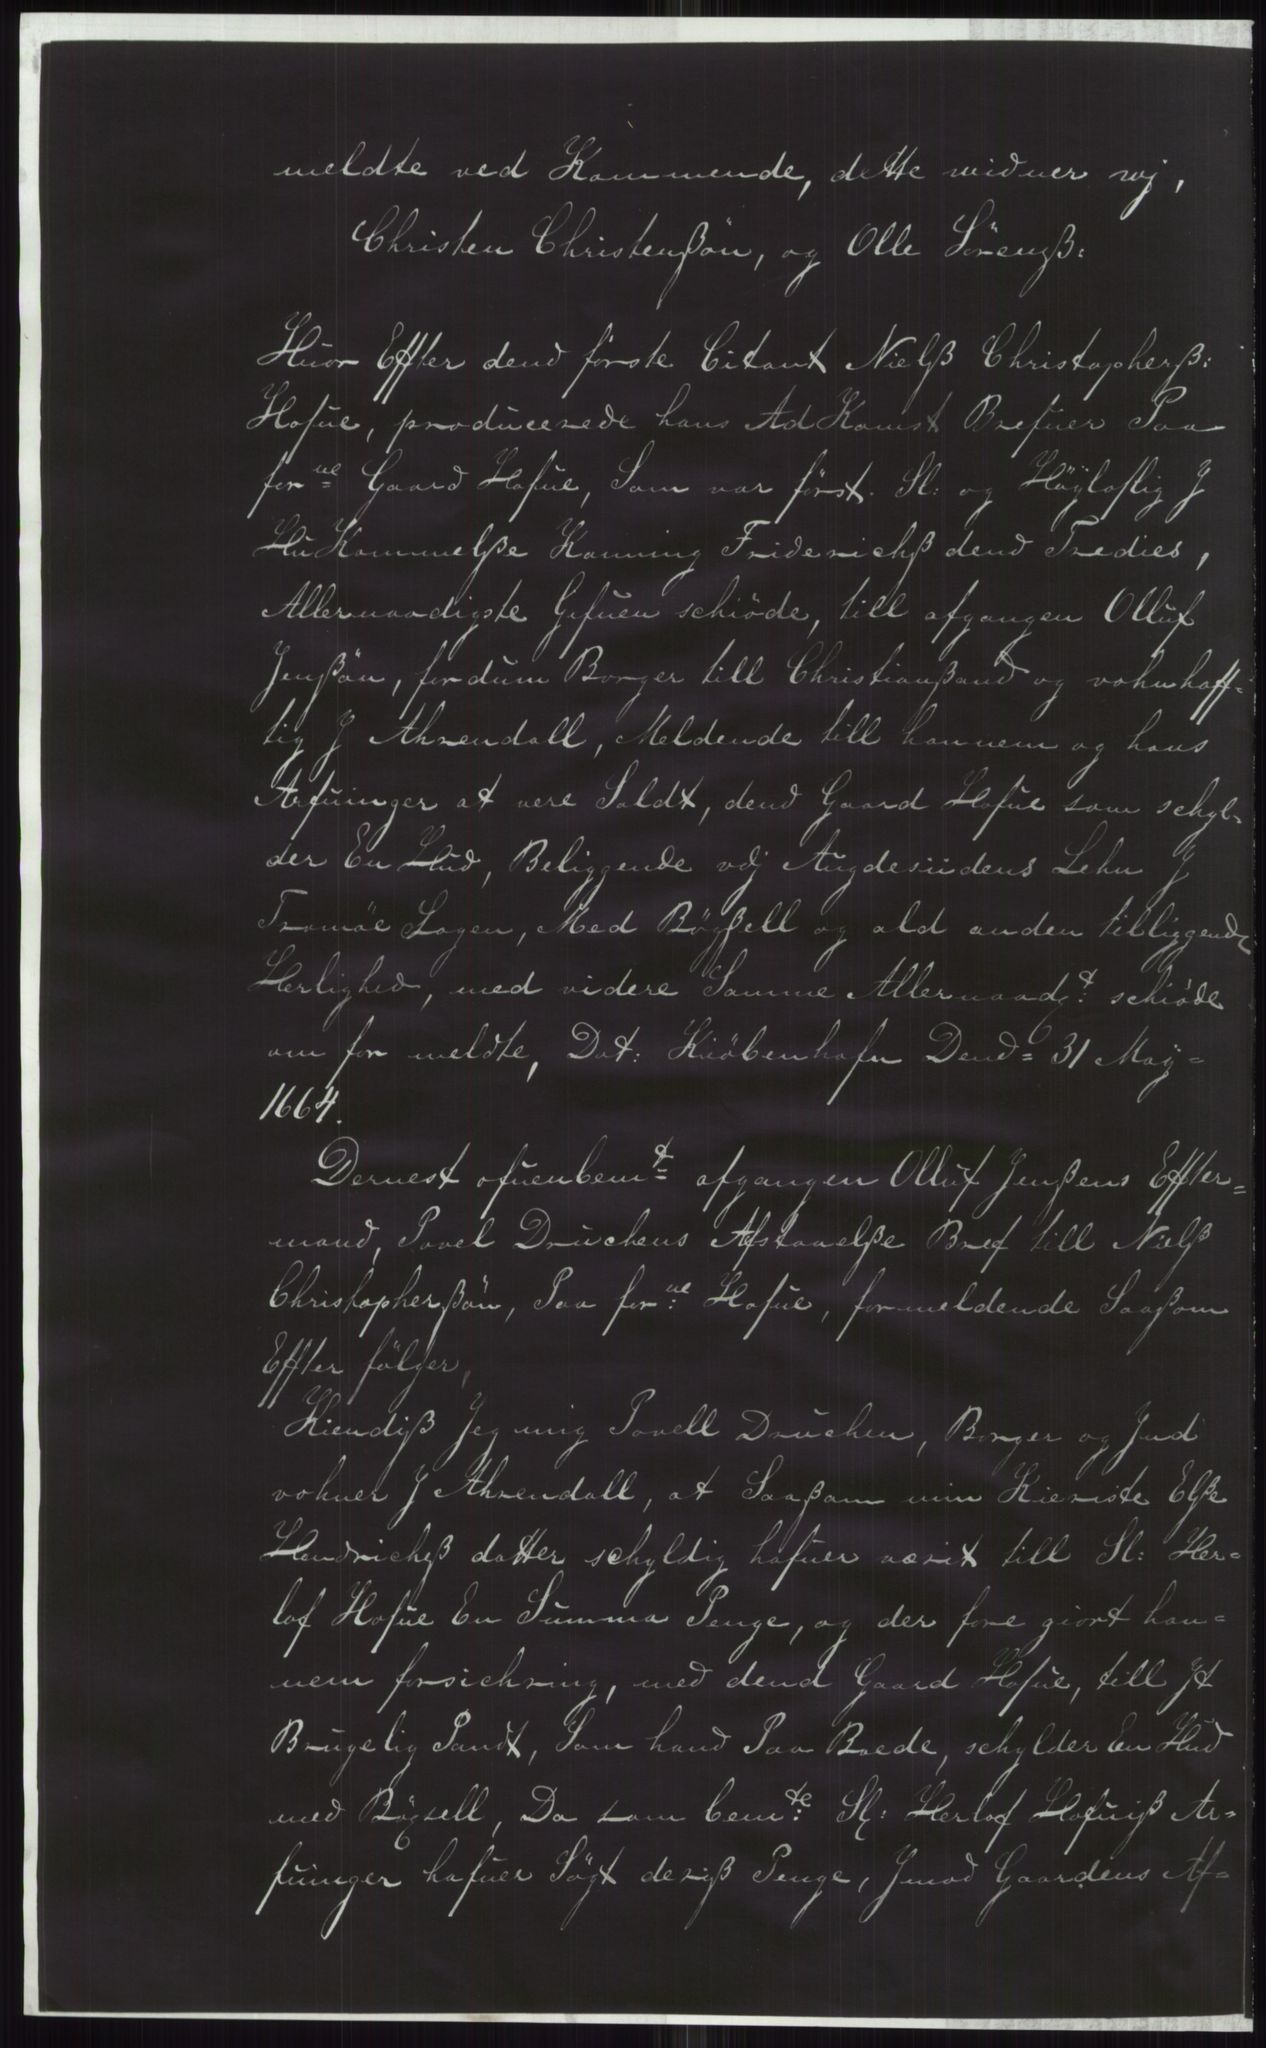 meldte ved Kommende, dette widner wj,
Christen Christenßön, og Olle Sörenß:
Huor Effter dend förste Citant Nielß Christopherß:
Hofue, producerede hans Ad Komst Brefuer Paa
forne Gaard Hofue, Som var först. Sl: og Höÿloflig J
Hu Kommelße Konning Friderichß dend Tredies,
Allernaadigste Gifuen schiöde, till afgangen Olluf
Jenßön, fordum Borger till Christianßand og vohnhaff-
tig J Ahrendall, Meldende till hannem og hans
Arfuinger at vere Soldt, dend Gaard Hofue som schyl-
der En Hud, Beliggende vdj Augdesiidens Lehn J
Tromöe Sogen, Med Böÿßell og ald anden tilliggende
Herlighed, med videre Samme Allernaadt: schiöde
om for meldte, Dat: Kiöbenhafn Dend= 31 Maÿ=
1664.
Dernest ofuenbemt= afgangen Olluf Jenßens Effter=
mand, Povel Druchens Afstaaelße Bref till Nielß
Christopherßön, Paa forne: Hofue, formeldende Saaßom
Effter fölger,
Kiendiß Jeg mig Povell Druchen, Borger og Jnd
vohner J Ahrendall, at Saaßom min Kieriste Elße
Hendrichß datter schyldig hafuer værit till Sl: Her=
lof Hofue En Summa Penge, og der fore giort han=
nem forsichring, med dend Gaard Hofue, till Jt
Brugelig Pandt, Som hand Paa Boede, schylder En Hud
med Böÿsell, Da som bemte: Sl: Herlof Hofuiß Ar=
fuinger hafuer Sögt deriß Penge, Jmod Gaardens Af=